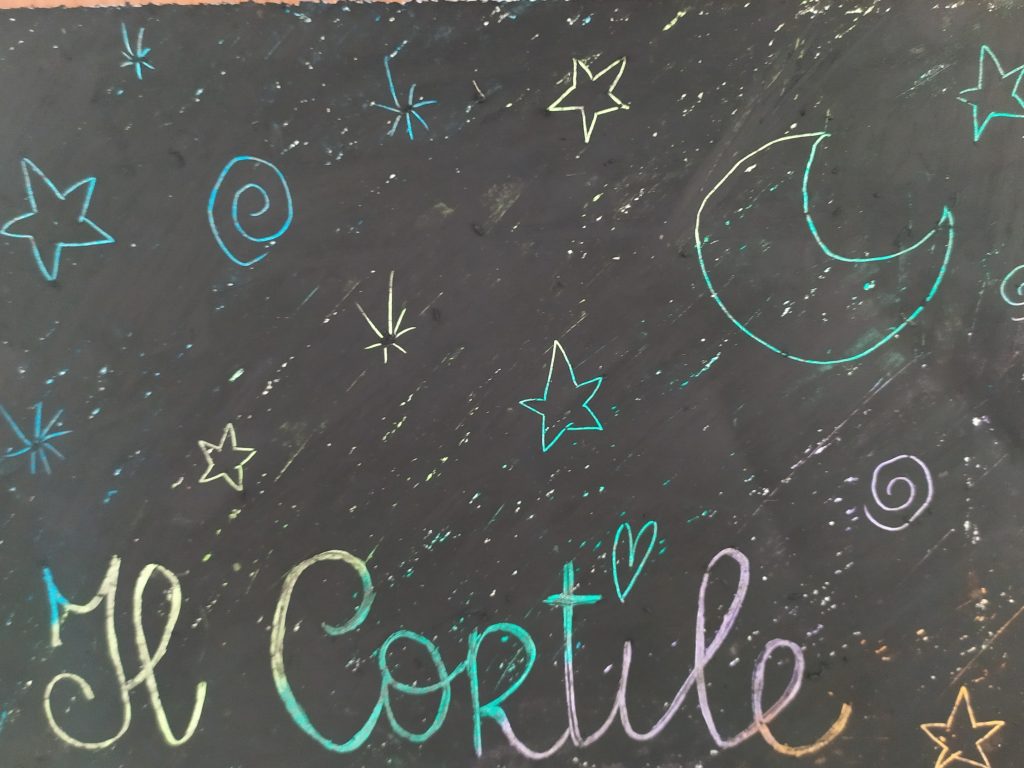 Il Cortile